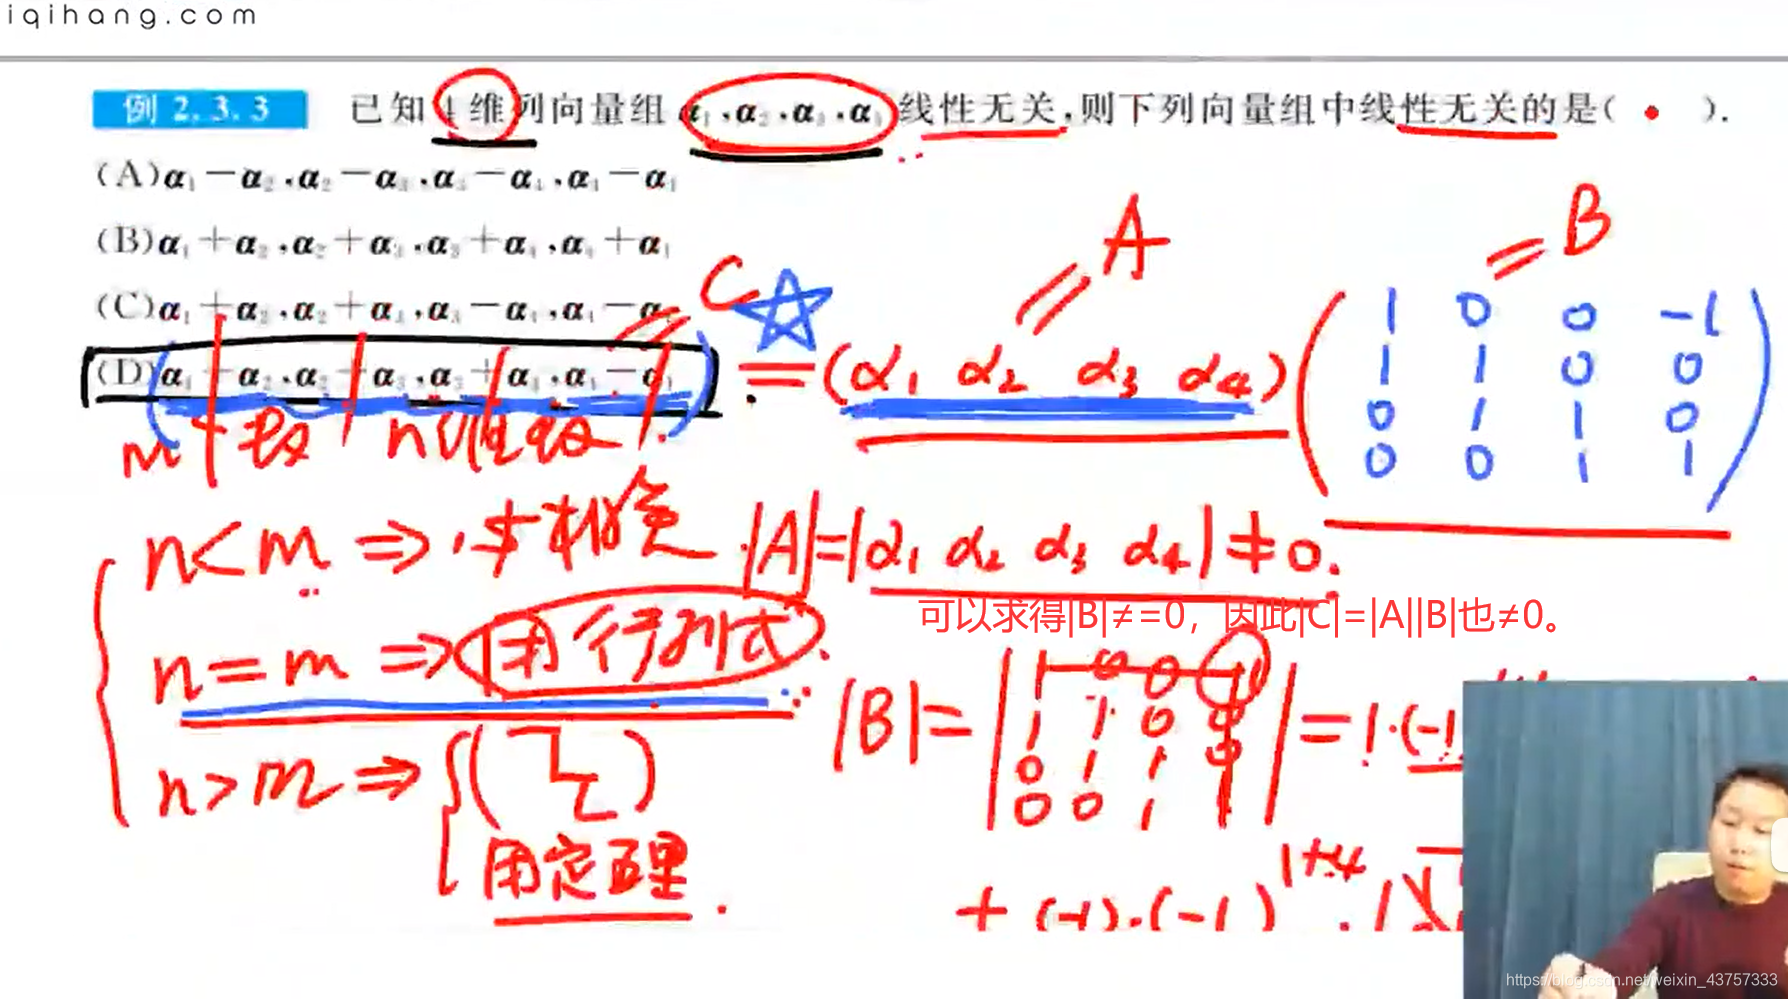 iqihang.com
例 2.3.3 已知4维列向量组α₁,α₂,α₃,α₄线性无关,则下列向量组中线性无关的是( ).
(A)α₁-α₂,α₂-α₃,α₃-α₄,α₄-α₁
(B)α₁+α₂,α₂+α₃,α₃+α₄,α₄+α₁
(C)α₁+α₂,α₂+α₃,α₃-α₄,α₄-α₁
(D)α₁+α₂,α₂+α₃,α₃+α₄,α₄-α₁
C
A
B
=(α₁ α₂ α₃ α₄)
1 0 0 -1
1 1 0 0
0 1 1 0
0 0 1 1
m个 n
n<m ⇒
|A|=|α₁ α₂ α₃ α₄|≠0.
可以求得|B|≠=0，因此|C|=|A||B|也≠0。
n=m ⇒ 用行列式.
|B|=
1 0 0 -1
1 1 0 0
0 1 1 0
0 0 1 1
=1·(-1
n>m ⇒
用定理.
+(-1)·(-1)¹⁺⁴·1
https://blog.csdn.net/weixin_43757333